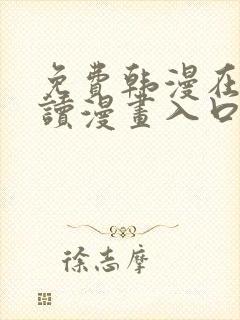 免费韩漫在
讀漫畫入口
徐志摩